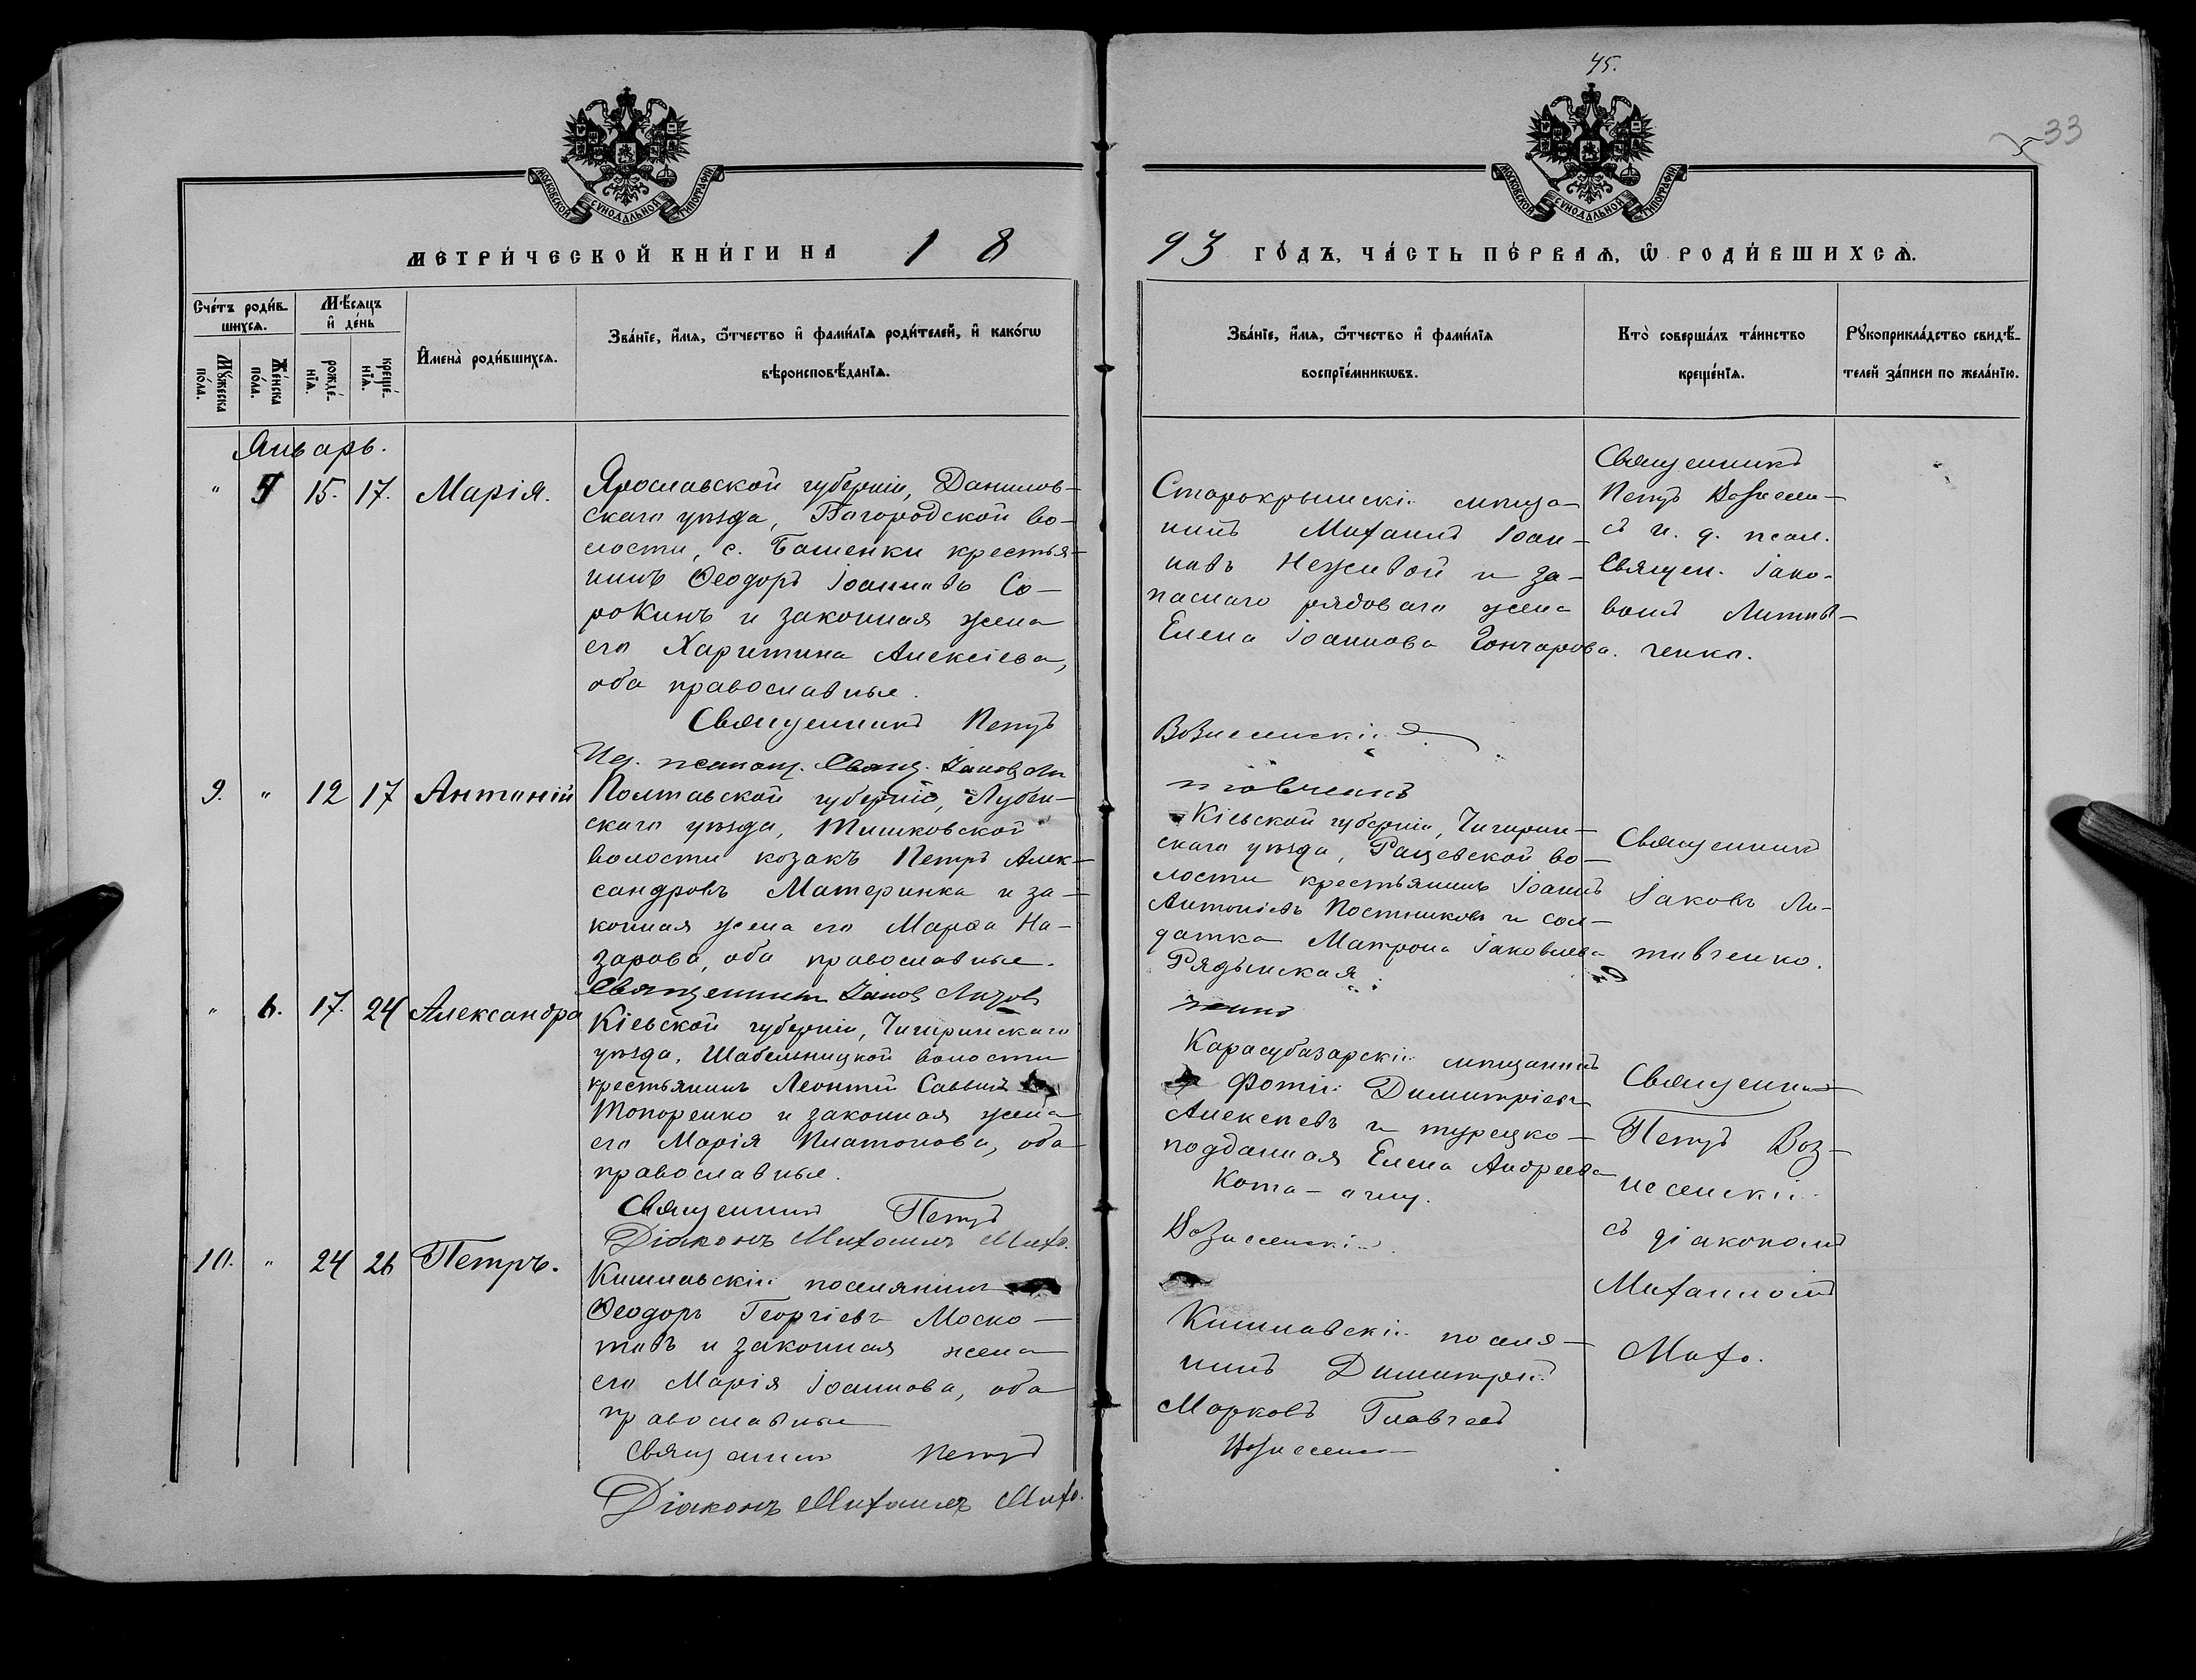 45.
33
МОСКОВСКОЙ СѴНОДАЛЬНОЙ ТИПОГРАФІИ
МОСКОВСКОЙ СѴНОДАЛЬНОЙ ТИПОГРАФІИ
МЕТРИ́ЧЕСКОЙ КНИ́ГИ НА 18
93 ГО́ДЪ, ЧА́СТЬ ПЕ́РВАѦ, Ѡ РОДИ́ВШИХСѦ.
Сче́тъ роди́в-
шихсѧ.
Мꙋ́жеска
по́ла.
Же́нска
по́ла.
Мѣ́сѧцъ
и҆ де́нь
рожде́-
нїѧ.
креще́-
нїѧ.
И҆мена̀ роди́вшихсѧ.
Зва́нїе, и҆́мѧ, ѻ҆́тчество и҆ фами́лїѧ роди́телей, и҆ како́гѡ
вѣроисповѣ́данїѧ.
Зва́нїе, и҆́мѧ, ѻ҆́тчество и҆ фами́лїѧ
воспрїе́мникѡвъ.
Кто̀ соверша́лъ та́инство
креще́нїѧ.
Рꙋкоприкла́дство свидѣ́-
телей за́писи по жела́нїю.
Январь.
" 5 15. 17. Марія.
Ярославской губерніи, Данилов-
скаго уѣзда, Богородской во-
лости, с. Башенки крестья-
нинъ Ѳеодоръ Іоанновъ Со-
рокинъ и законная жена
его Харитина Алексіева,
оба православные.
Священникъ Петръ
Старокрымскій мѣща-
нинъ Михаилъ Іоан-
новъ Неживой и за-
паснаго рядоваго жена
Елена Іоаннова Гончарова.
Вознесенскій
Священникъ
Петръ Вознесен-
с и. д. псал.
Священ. Іако-
вомъ Литив-
ченко.
Ид. псаломщ. Свящ. Іаковъ Ли
тивченко
9. " 12 17 Антоній
Полтавской губерніи, Лубен-
скаго уѣзда, Тишковской
волости козакъ Петръ Алек-
сандровъ Материнка и за-
конная жена его Марѳа На-
зарова, оба православные.
Священникъ Іаковъ Литив
ченко
Кіевской губерніи, Чигирин-
скаго уѣзда, Рацевской во-
лости крестьянинъ Іоаннъ
Антоніевъ Постниковъ и сол-
датка Матрона Іаковлева
Рядынская
Священникъ
Іаковъ Ли-
тивченко.
" 6. 17. 24 Александра
Кіевской губерніи, Чигиринскаго
уѣзда, Шабельницкой волости
крестьянинъ Леонтій Саввинъ
Топоренко и законная жена
его Марія Платонова, оба
православные.
Священникъ Петръ
Діаконъ Михаилъ Михо.
Карасубазарскій мѣщанинъ
Фотій Димитріевъ
Алексѣевъ и турецко-
подданная Елена Андреева
Вознесенскій.
Священникъ
Петръ Воз-
несенскій
съ діакономъ
Михаиломъ
Михо.
10. " 24 26 Петръ.
Кишлавскій поселянинъ
Ѳеодоръ Георгіевъ Моско-
товъ и законная жена
его Марія Іоаннова, оба
православные
Священникъ Петръ
Діаконъ Михаилъ Михо.
Кишлавскій поселя-
нинъ Димитрій
Марковъ Главчевъ
Вознесенск